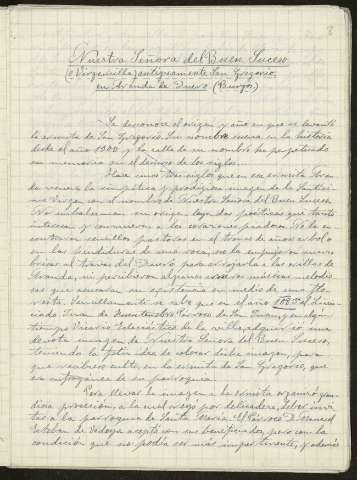 Nuestra Señora del Buen Suceso
(o Virgencilla) antiguamente San Gregorio
en Aranda de Duero (Burgos)
Se desconoce el origen y año en que se levantó
la ermita de San Gregorio. Su nombre suena en la historia
desde el año 1500 y la calle de su nombre ha perpetuado
su memoria en el decurso de los siglos.
Hace unos tres siglos que en esa ermita Aran
da venera la simpática y prodigiosa imagen de la Santísi
ma Virgen con el nombre de Nuestra Señora del Buen Suceso.
No embalsaman su origen leyendas poéticas que tanto
interesan y conmueven a los corazones piadosos. No la en
contraron sencillos pastores en el tronco de añoso árbol o
en las hendiduras de una roca, no la empujaron suaves
brisas al través del Duero para arrojarla a las orillas de
Aranda, ni percibieron algunos músicas melodio
sas que anunciaran su existencia en medio de una flo
resta. Sencillamente se sabe que en el año el Licen
ciado Juan de Párroco de San Juan, y en algún
tiempo Vicario Eclesiástico de la villa, adquirió una
devota imagen de Nuestra Señora del Buen Suceso,
teniendo la feliz idea de colocar dicha imagen, para
que recibiera culto, en la ermita de San Gregorio, que
era de su parroquia.
Para llevar la imagen a la ermita organizó gran
diosa procesión, a la cual creyó por delicadeza, deber invi
tar a la parroquia de Santa María. El Párroco D. Manuel
Esteban de aceptó con sus beneficiados, pero con la
condición que no podía ser más impertinente, y además